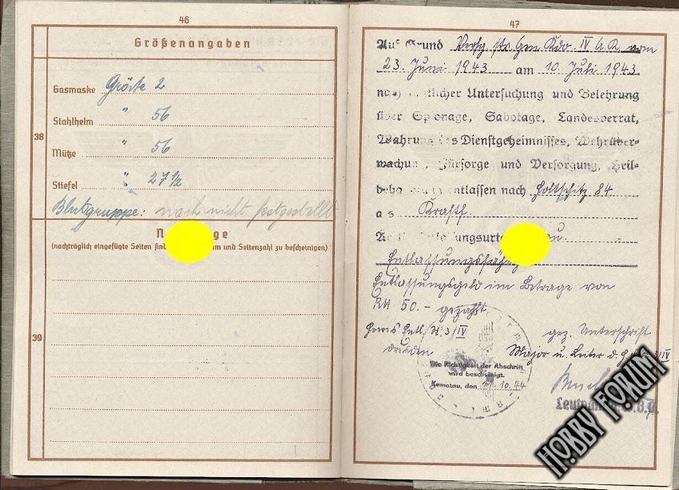 46
Größenangaben
Gasmaske Größe 2
38
Stahlhelm " 56
Mütze " 56
Stiefel " 27½
Blutgruppe: noch nicht festgestellt
(nachträglich eingefügte Seiten sind um und Seitenzahl zu bescheinigen)
39
47
Auf Grund Verfg. Gen. Kdo. IV A.K. vom
23. Juni 1943 am 10. Juli 1943
nach licher Untersuchung und Belehrung
über Spionage, Sabotage, Landesverrat,
Wahrung des Dienstgeheimnisses, Wehrüber-
wachung, Fürsorge und Versorgung, Heil-
entlassen nach Holtschitz 84
als Kraftf.
Entlassungsgeld im Betrage von
RM 50.- gezahlt
Heeres Entl. St. 3/IV gez. Unterschrift
Dresden Major u. Leiter d.
Die Richtigkeit der Abschrift
wird bescheinigt.
Komotau, den 10.44
HOBBY FORUM